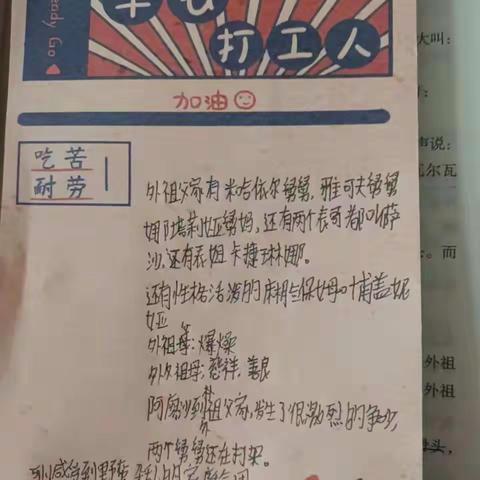 Ready Go
打工人
大叫：
加油
吃苦
耐劳
声说：
瓦尔瓦
外祖父家有米哈依尔舅舅，雅可夫舅舅
娜塔莉娅舅妈，还有两个表哥都叫萨
沙，还有表姐卡捷琳娜。
。而
还有性格活泼的保姆叶甫盖妮
娅
外祖：爆燥
外祖母：慈祥，善良
外祖
外祖
阿廖沙到外祖父家，发生了很激烈的争吵，
两个舅舅还在打架。